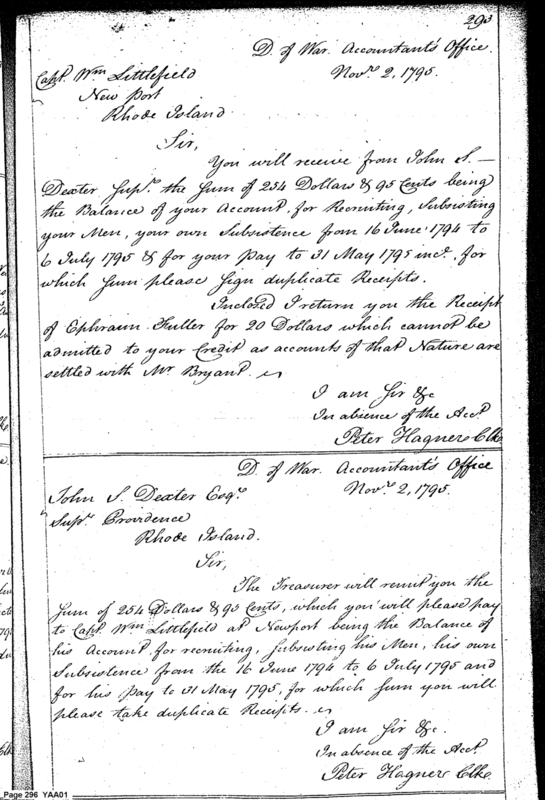 293
D. of War. Accountant's Office.
Novr. 2, 1795.
Capt. Wm Littlefield
New Port
Rhode Island
Sir,
You will receive from John S. —
Dexter Supr. the Sum of 254 Dollars & 95 Cents being
the Balance of your Account, for Recruiting, Subsisting
your Men, your own Subsistence from 16 June 1794 to
6 July 1795 & for your Pay to 31 May 1795 ince. for
which Sum please Sign duplicate Receipts.
Inclosed I return you the Receipt
of Ephraim Fuller for 20 Dollars which cannot be
admitted to your Credit as accounts of that Nature are
settled with Mr Bryant
I am Sir &c
In absence of the Acct.
Peter Hagner Clk.
D. of War. Accountant's Office
Novr. 2, 1795.
John S. Dexter Esqr.
Supr. Providence
Rhode Island.
Sir,
The Treasurer will remit you the
Sum of 254 Dollars & 95 Cents, which you will please pay
to Capt. Wm. Littlefield at Newport being the Balance of
his Account for recruiting, Subsisting his Men, his own
Subsistence from the 16 June 1794 to 6 July 1795 and
for his Pay to 31 May 1795, for which Sum you will
please take duplicate Receipts.
I am Sir &c.
In absence of the Acct.
Peter Hagner Clk.
Page 296 YAA01